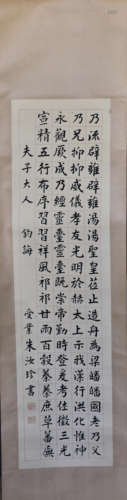 乃流辟雍辟雍湯湯聖皇莅止造舟為梁皤皤國老乃父
乃兄抑抑威儀孝友光明於赫太上示我漢行洪化惟神
永觀厥成乃經靈臺靈臺既崇帝勤時登爰考休徵三光
宣精五行布序習習祥風祁祁甘雨百穀蓁蓁庶草蕃廡
夫子大人 鈞誨
受業朱汝珍書